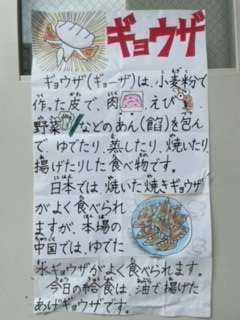 ギョウザ
ギョウザ(ギョーザ)は、小麦粉で
作った皮で、肉、えび、
野菜などのあん(餡)を包ん
で、ゆでたり、蒸したり、焼いたり
揚げたりした食べ物です。
日本では、焼いた焼きギョウザ
がよく食べられ
ますが、本場の
中国では、ゆでた
水ギョウザがよく食べられます。
今日の給食は、油で揚げた
あげギョウザです。